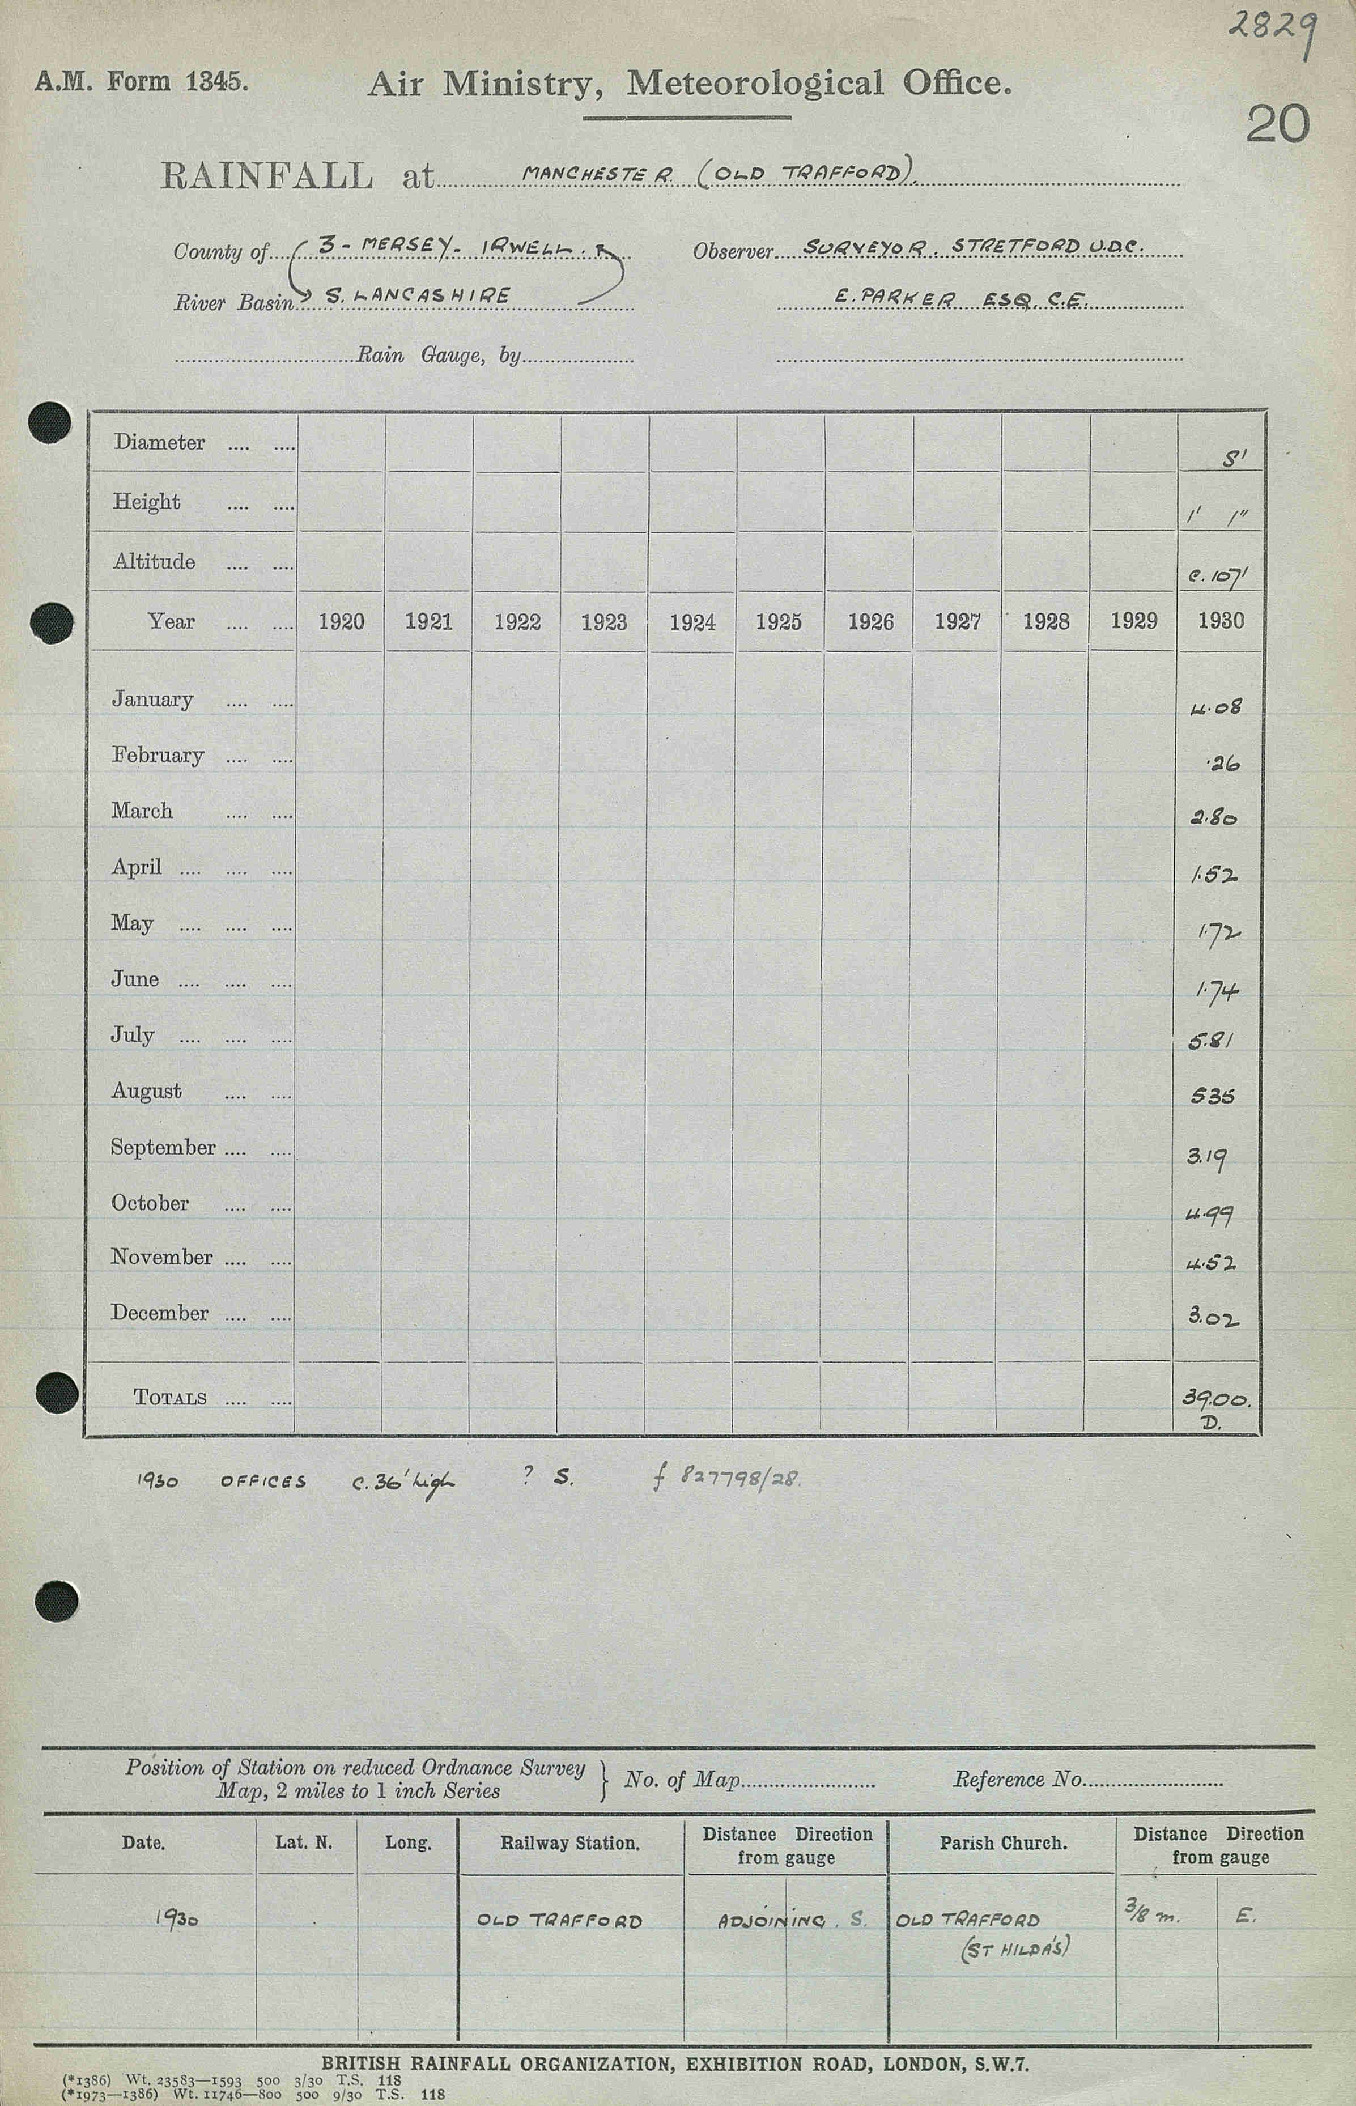 2829
A.M. Form 1345. Air Ministry, Meteorological Office.
20
RAINFALL at MANCHESTER (OLD TRAFFORD).
County of 3 - MERSEY - IRWELL. Observer SURVEYOR, STRETFORD U.D.C.
River Basin S. LANCASHIRE E. PARKER ESQ. C.E.
Rain Gauge, by
Diameter .... .... 8'
Height .... .... 1' 1"
Altitude .... .... c. 107'
Year .... .... 1920 1921 1922 1923 1924 1925 1926 1927 1928 1929 1930
January .... .... 4.08
February .... .... .26
March .... .... 2.80
April .... .... .... 1.52
May .... .... .... 1.72
June .... .... .... 1.74
July .... .... .... 5.81
August .... .... 535
September .... .... 3.19
October .... .... 4.99
November .... .... 4.52
December .... .... 3.02
TOTALS .... .... 39.00.
D.
1930 OFFICES c. 36' high ? S. f 827798/28.
Position of Station on reduced Ordnance Survey
Map, 2 miles to 1 inch Series } No. of Map Reference No.
Date. Lat. N. Long. Railway Station. Distance Direction from gauge Parish Church. Distance Direction from gauge
1930 OLD TRAFFORD ADJOINING. S. OLD TRAFFORD 3/8 m. E.
(ST HILDA'S)
BRITISH RAINFALL ORGANIZATION, EXHIBITION ROAD, LONDON, S.W.7.
(*1386) Wt. 23583—1593 500 3/30 T.S. 118
(*1973—1386) Wt. 11746—800 500 9/30 T.S. 118